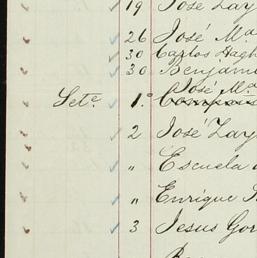 19 José Zay
26 José Mª
30 Carlos Hagh
30 Benjami
José Mª
Sete. 1.º
2 José Zay
" Escuela
" Enrique
3 Jesus Gor